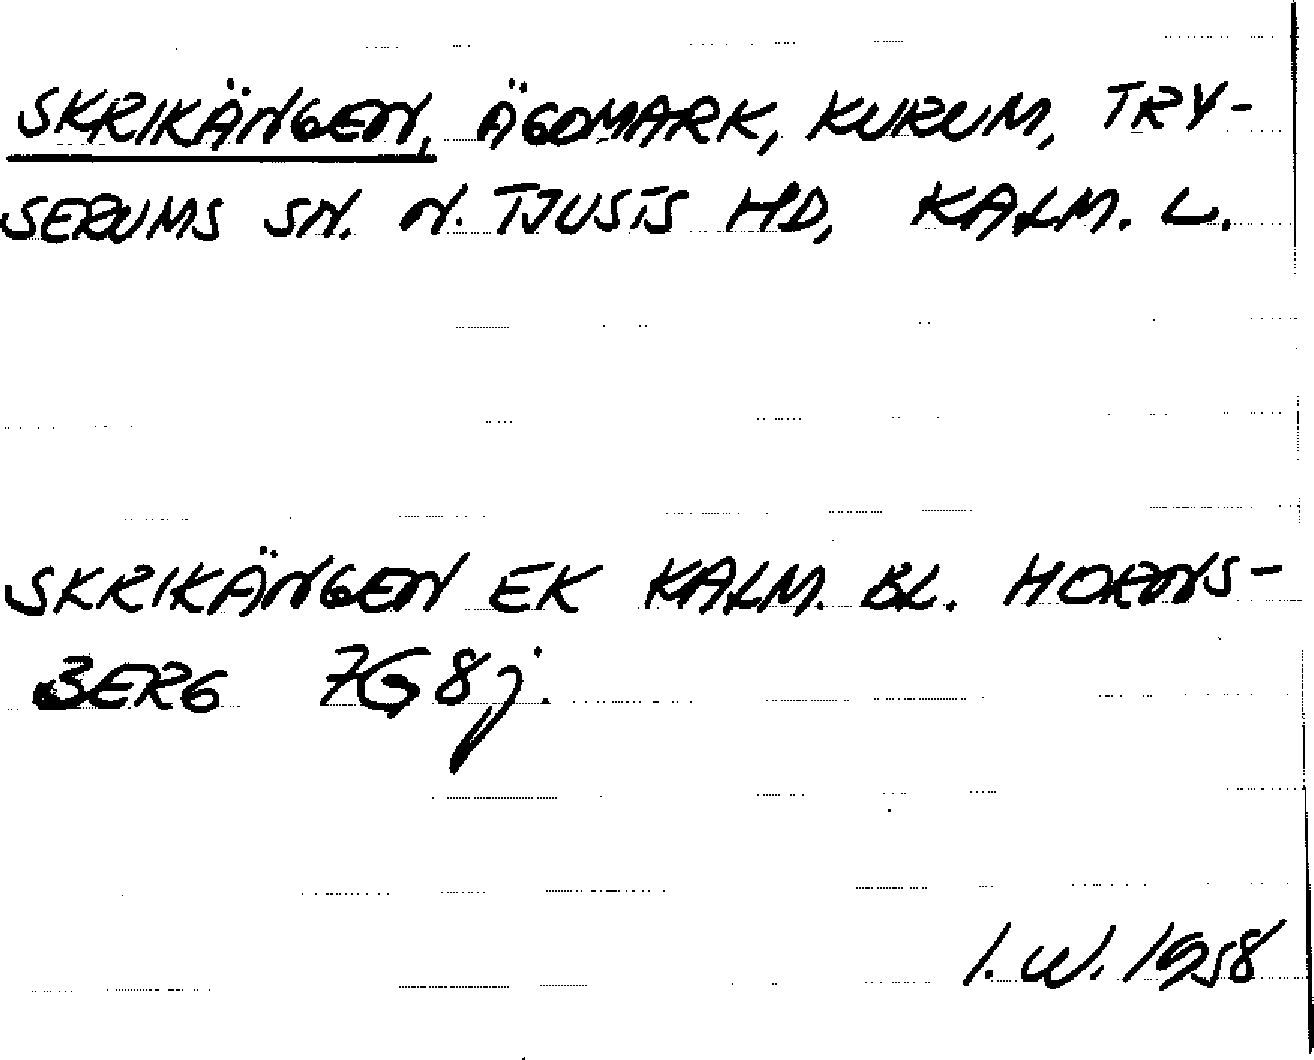 SKRIKÄNGEN, ÄGOMARK, KURUM, TRY-
SERUMS SN. N. TJUSTS HD, KALM. L.
SKRIKÄNGEN EK KALM. BL. HORNS-
BERG 7G8j.
I.W. 1958